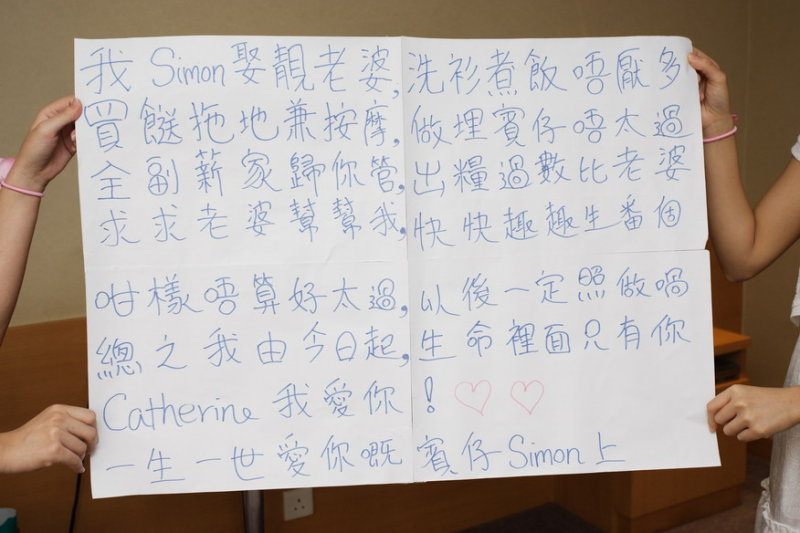 我 Simon 娶靚老婆, 洗衫煮飯唔厭多
買餸拖地兼按摩, 做埋賓仔唔太過
全副薪家歸你管, 出糧過數比老婆
求求老婆幫幫我, 快快趣趣生番個
咁樣唔算好太過, 以後一定照做喎
總之我由今日起, 生命裡面只有你
Catherine 我愛你!
一生一世愛你嘅 賓仔 Simon 上